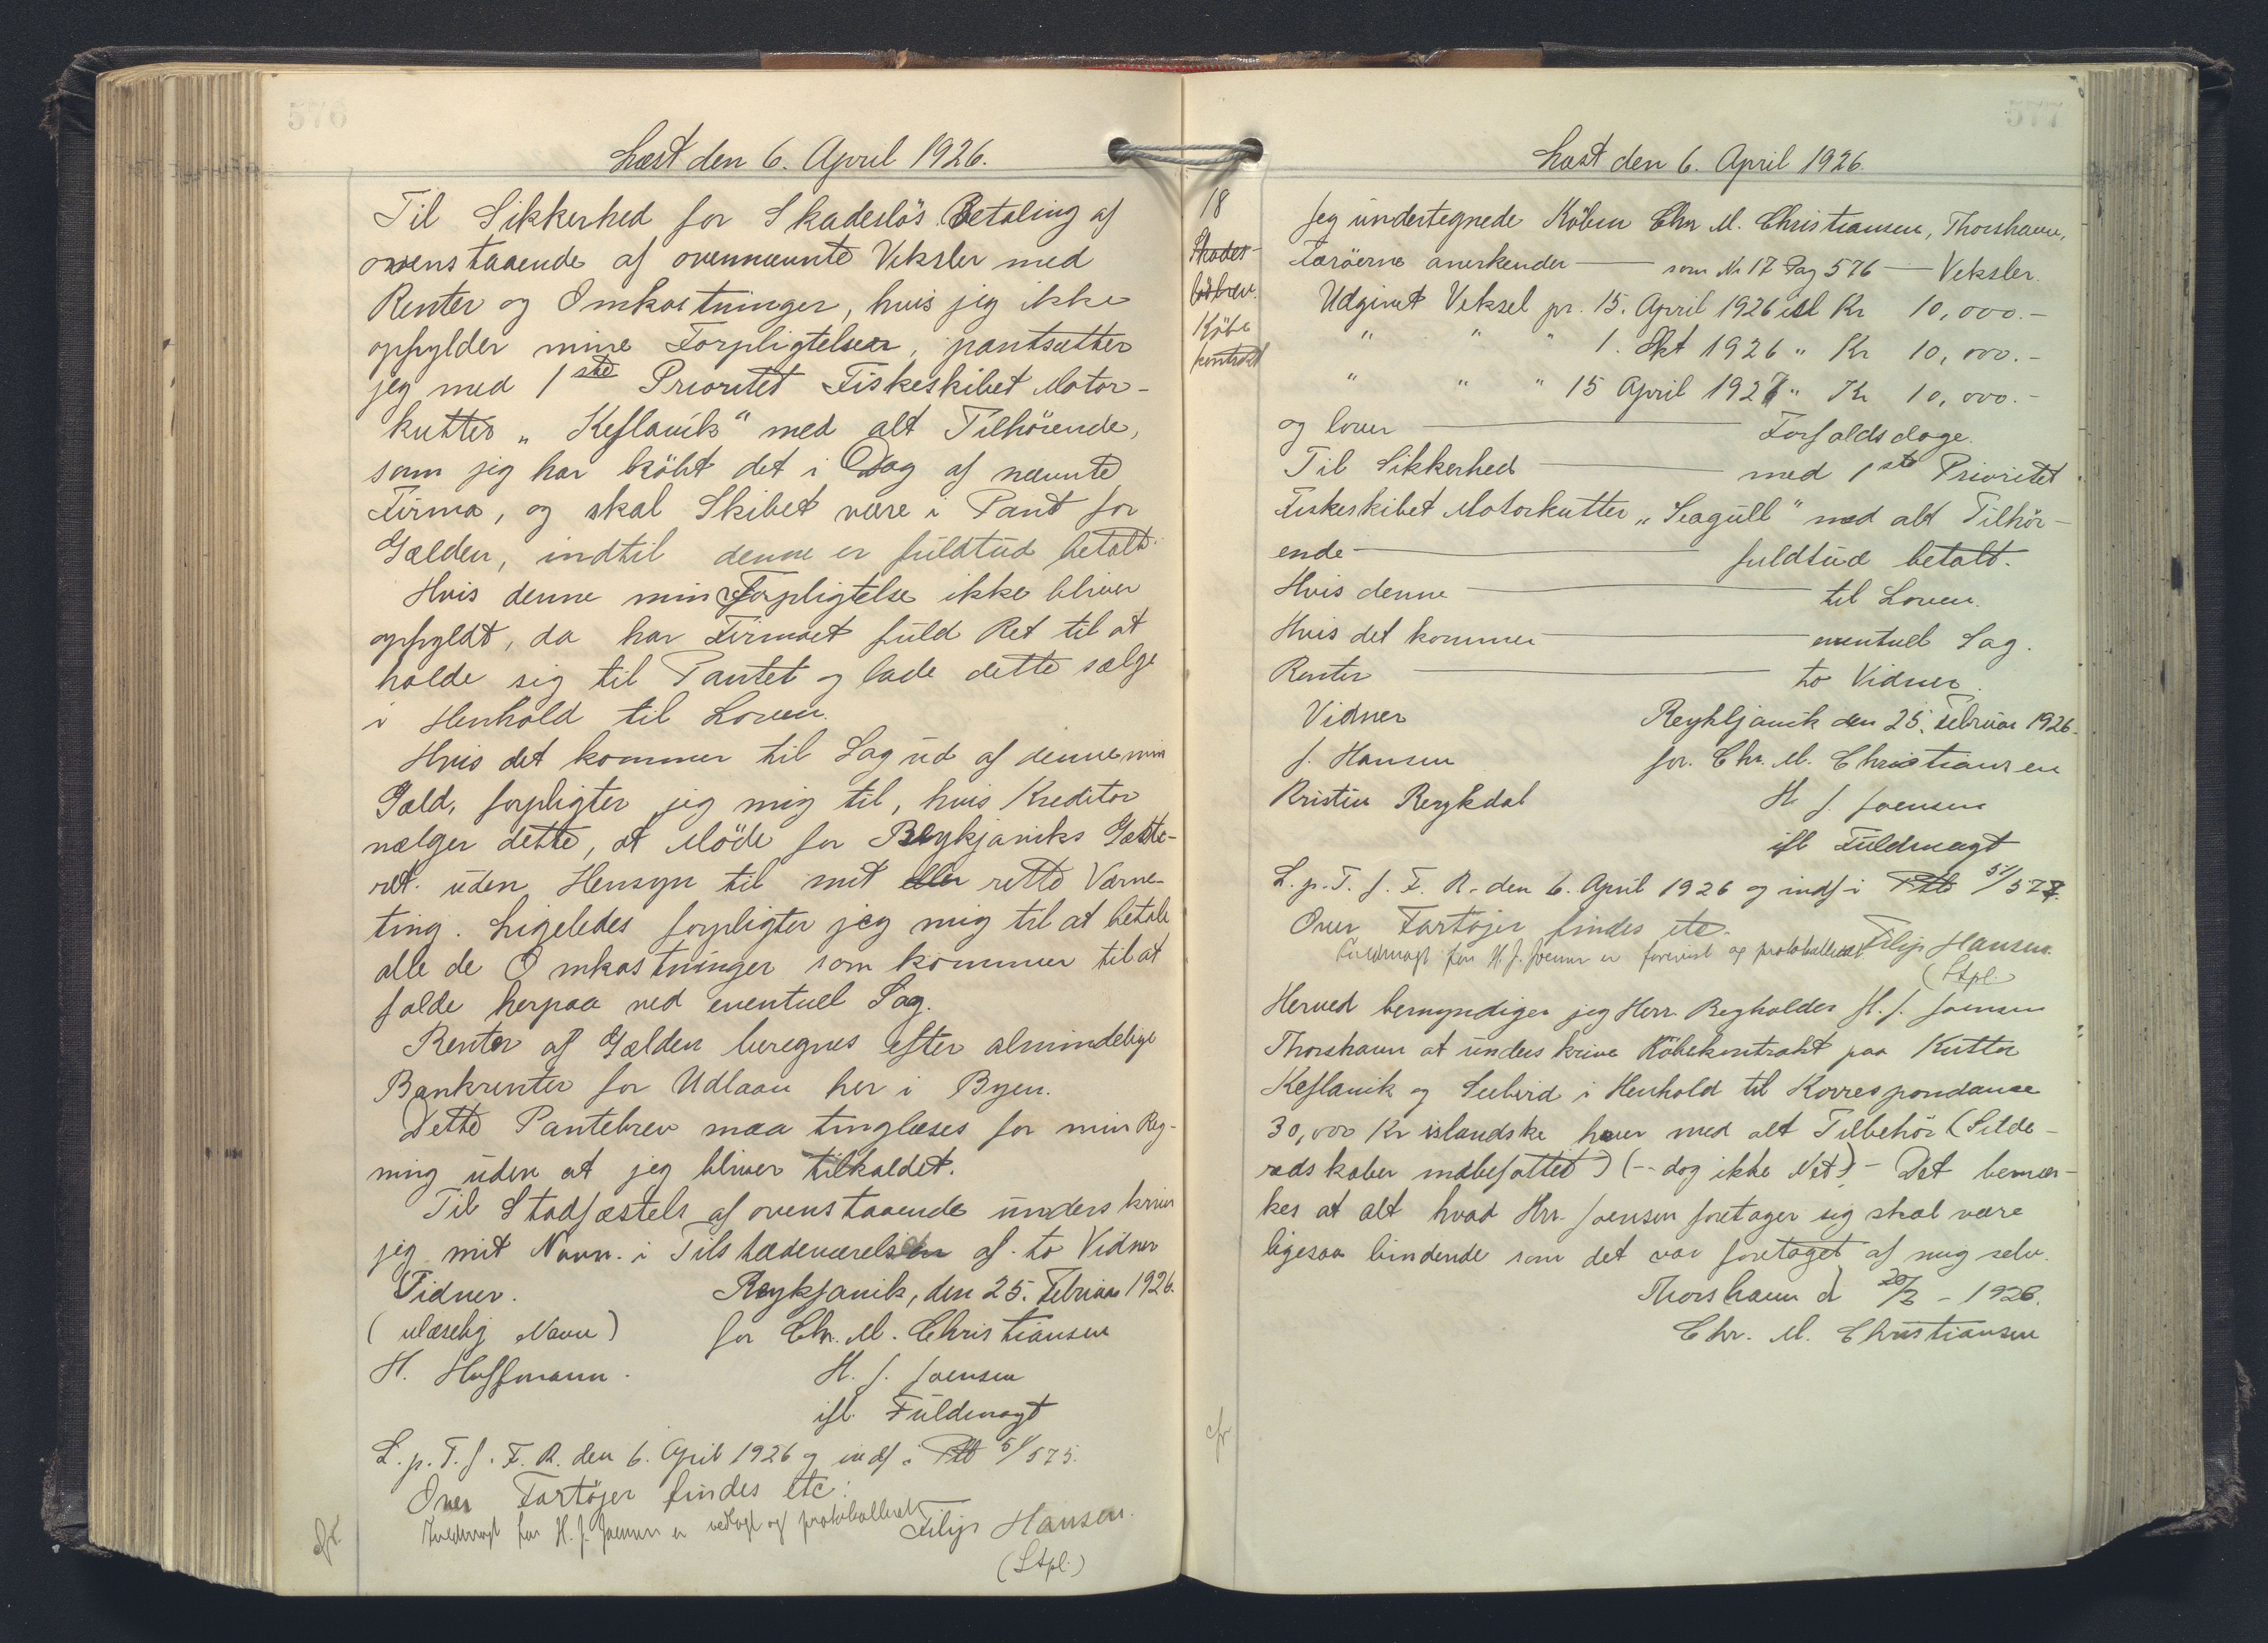 Læst den 6. April 1926.
Til Sikkerhed for Skadeslös Betaling af
ovenstaaende af ovennævnte Veksler med
Renter og Omkostninger, hvis jeg ikke
opfylder mine Forpligtelser, pantsætter
jeg med 1ste Prioritet Fiskeskibet Motor-
kutter „Keflavik" med alt Tilhörende,
som jeg har köbt det i Dag af nævnte
Firma, og skal Skibet være i Pant for
Gælden, indtil denne er fuldtud betalt.
Hvis denne min Forpligtelse ikke bliver
opfyldt, da har Firmaet fuld Ret til at
holde sig til Pantet og lade dette sælge
i Henhold til Loven.
Hvis det kommer til Sag ud af denne min
Gæld, forpligter jeg mig til, hvis Kreditor
vælger dette, at Möde for Reykjaviks Gæste-
ret. uden Hensyn til mit eller rette Værne-
ting. Ligeledes forpligter jeg mig til at betale
alle de Omkostninger som kommer til at
falde herpaa ved eventuel Sag.
Renter af Gælden beregnes efter almindelige
Bankrenter for Udlaan her i Byen.
Dette Pantebrev maa tinglæses for min Reg-
ning uden at jeg bliver tilkaldet.
Til Stadfæstels af ovenstaaende underskriver
jeg mit Navn. i Tilstædeværelsen af to Vidner
Vidner. Reykjavik, den 25. Februar 1926.
(ulæselig Navn) for Chr. M. Christiansen
H. Hoffmann. H. J. Joensen
ifl. Fuldmagt
L. p. T. f. F. R. den 6. April 1926 og indf. i Ptb 51/575.
Over Fartöjer findes etc.
Fuldmagt for H. J. Joensen er vedlagt og protokolleret Filip Hansen.
(Stpl.)
cfr.
Læst den 6. April 1926.
18
Skades-
lösbrev.
Köbe
kontrakt
Jeg undertegnede Köbm Chr M. Christiansen, Thorshavn,
Færöerne anerkender — som Nr 17 Pag 576 — Veksler.
Udgivet Veksel pr. 15. April 1926 ist Kr 10,000.-
" " " 1. Okt 1926 " Kr 10,000.-
" " " 15 April 1927 " Kr 10,000.-
og lover — Forfaldsdage.
Til Sikkerhed — med 1ste Prioritet
Fiskeskibet Motorkutter „Seagull" med alt Tilhör-
ende — fuldtud betalt.
Hvis denne — til Loven.
Hvis det kommer — eventuel Sag.
Renter — to Vidner.
Vidner Reykljavik den 25. Februar 1926.
J. Hansen for. Chr. M. Christiansen
Kristin Reykdal H J. Joensen
ifl Fuldmagt
L. p. T. f. F. R. den 6. April 1926 og indf i Ptb 51/577.
Over Fartöjer findes etc.
Fuldmagt for H. J. Joensen er forevist og protokolleret Filip Hansen.
(Stpl.)
Herved bemyndiger jeg Herr. Bogholder H. J. Joensen
Thorshavn at underskrive Köbekontrakt paa Kutter
Keflavik og Seebird i Henhold til Korrespondance
30,000 Kr islandske hver med alt Tilbehör (Silde-
redskaber indbefattet) (-- dog ikke Net) - Det bemær-
kes at alt hvad Hrr. Joensen foretager sig skal være
ligesaa bindende som det var foretaget af mig selv.
Thorshavn d 20/2 - 1926.
Chr. M. Christiansen
cfr